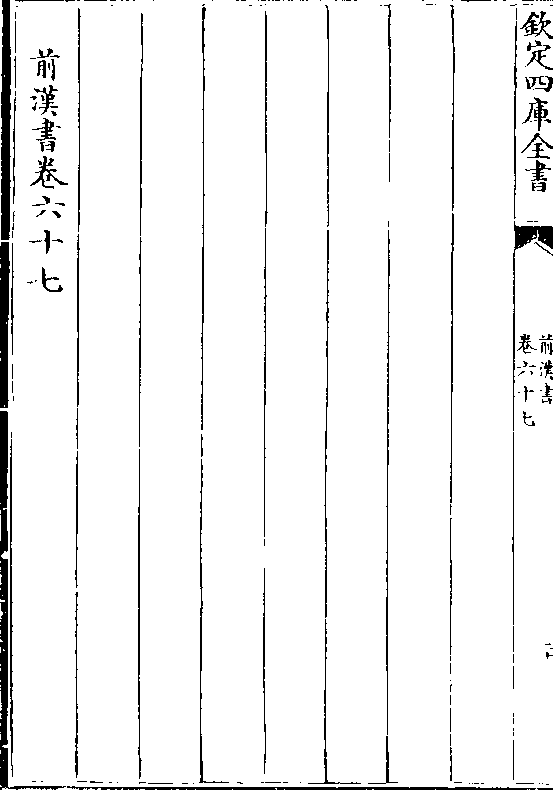 欽定四庫全書
前漢書
卷六十七
前漢書卷六十七